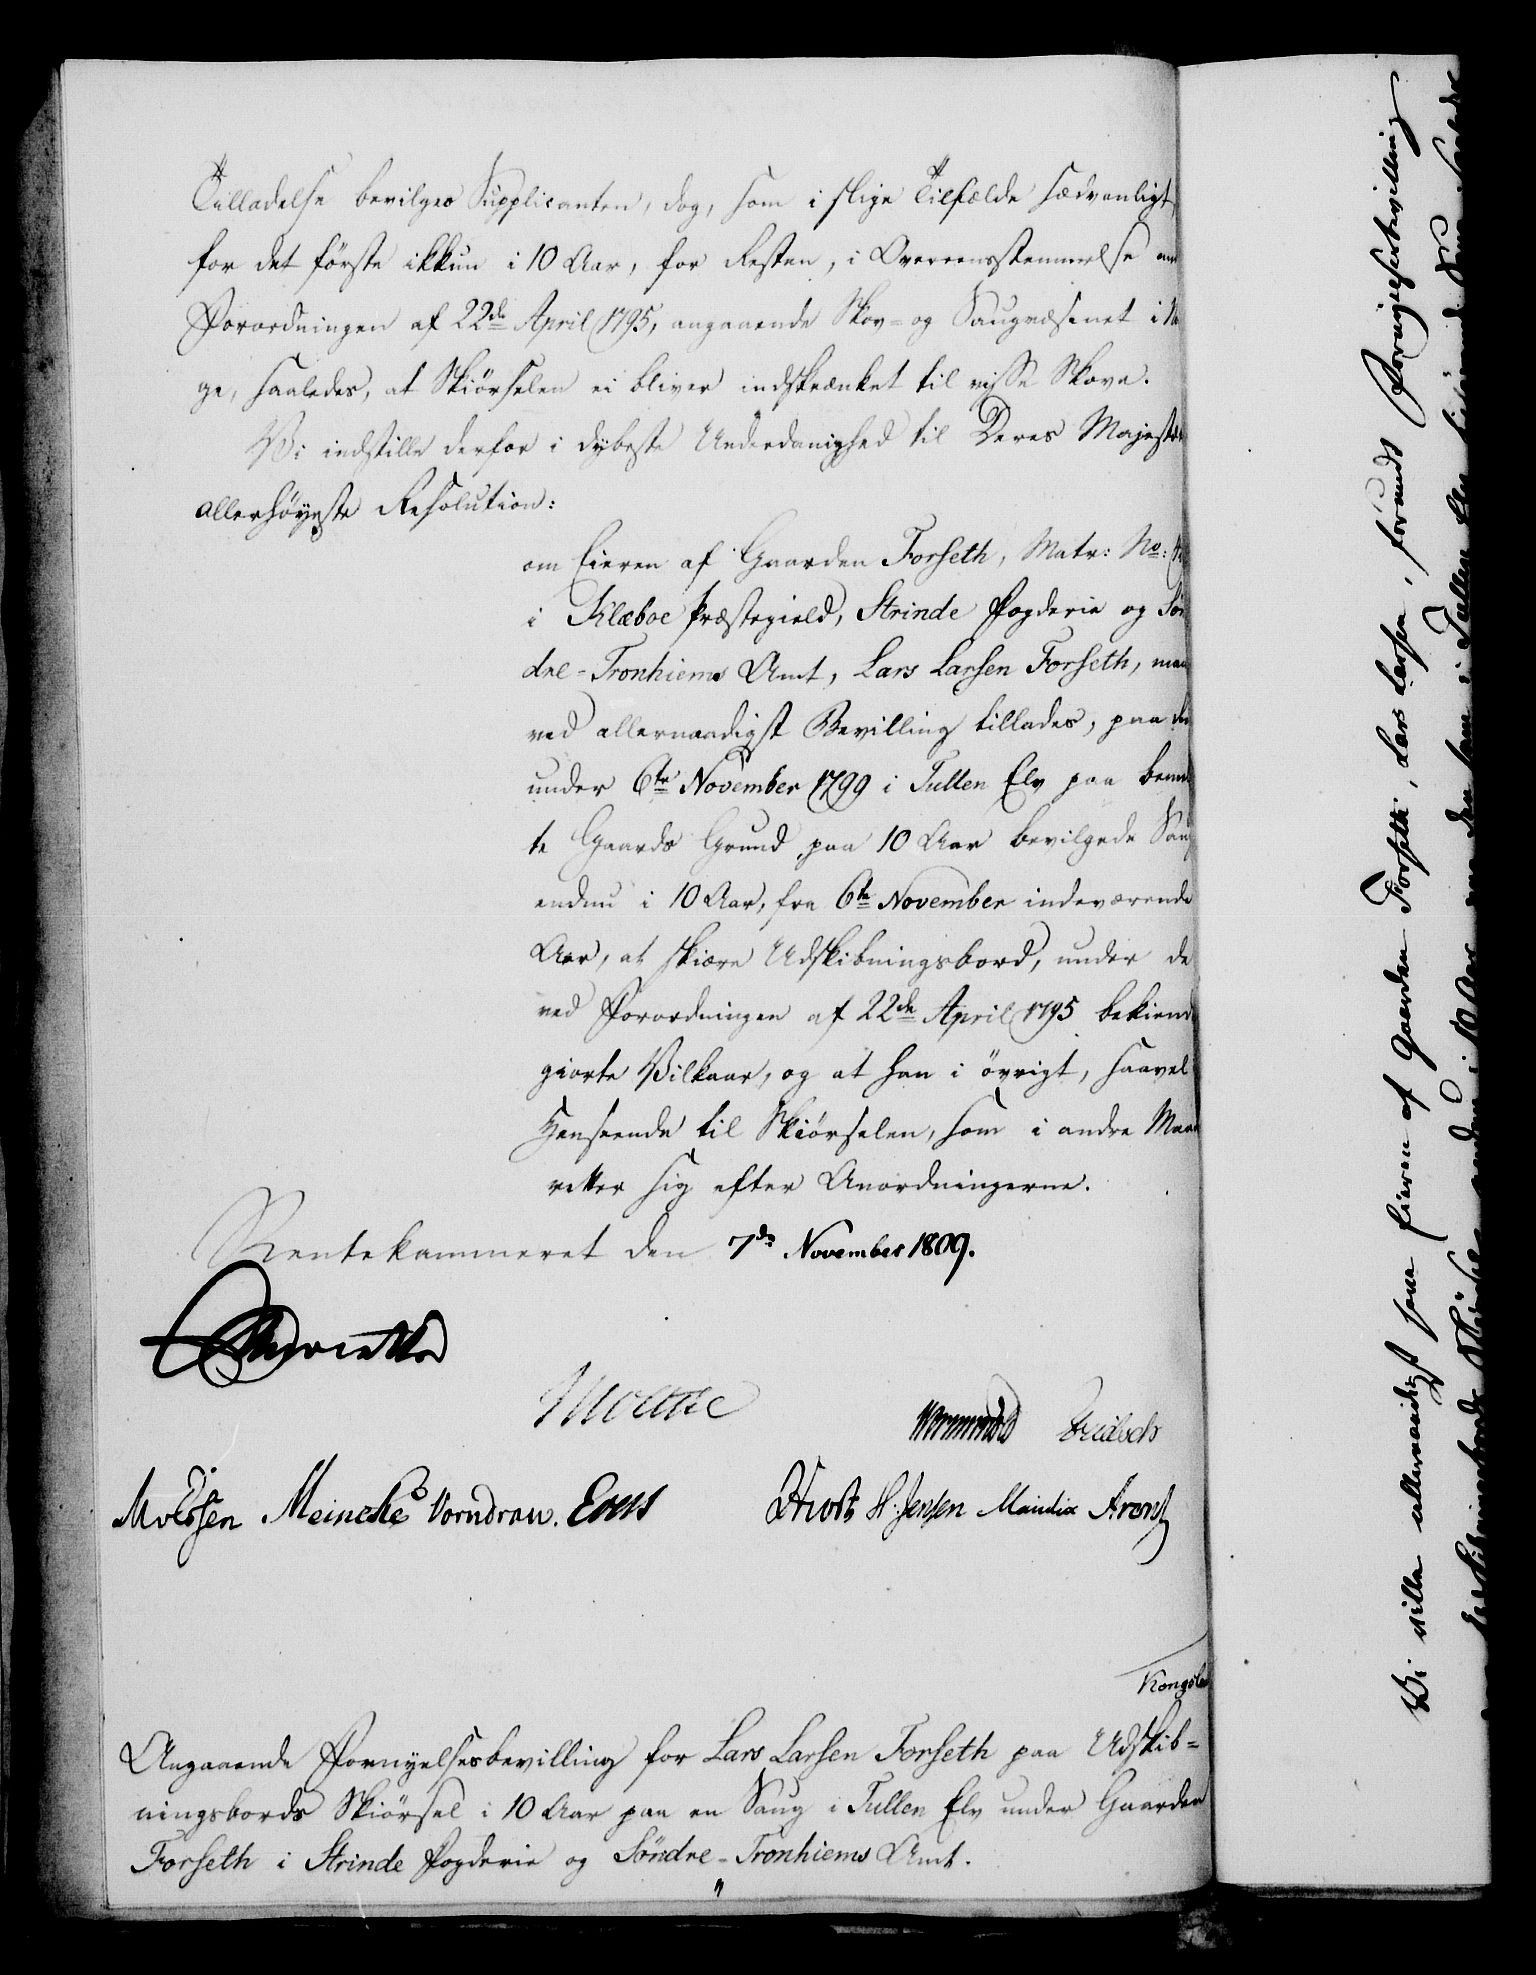 Tilladelse bevilges Supplicanten, dog, som i slige Tilfælde sædvanligt
for det förste ikkun i 10 Aar, for Resten, i Overeensstemmelse med
Forordningen af 22de April 1795, angaaende Skov- og Saugvæsenet i No
ge, saaledes, at Skiörselen ei bliver indskrænket til visse Skove.
Vi indstille derfor i dybeste Underdanighed til Deres Majestæts
allerhöyeste Resolution:
om Eieren af Gaarden Forseth, Matr: No:
i Klæboe Præstegield, Strinde Fogderie og Sön
dre-Tronhiems Amt, Lars Larsen Forseth, maa
ved allernaadigst Bevilling tillades, paa den
under 6te November 1799 i Tullen Elv paa bemeld
te Gaards Grund paa 10 Aar bevilgede Saug
endnu i 10 Aar, fra 6te November indeværende
Aar, at skiære Udskibningsbord, under de
ved Forordningen af 22de April 1795 bekiendt
giorte Vilkaar, og at han i övrigt, saavel
Henseende til Skiörselen, som i andre Maader
retter sig efter Anordningerne.
Rentekammeret den 7de November 1809.
Moltke
Wormskiold
Meinche Vorndran.
H. Jensen Arentz
Kongsb
Angaaende Fornyelsesbevilling for Lars Larsen Forseth paa Udskib-
ningsbords Skiörsel i 10 Aar paa en Saug i Tullen Elv under Gaarden
Forseth i Strinde Fogderie og Söndre-Tronhiems Amt.
Vi ville allernaadigst have Eieren af Gaarden Forseth, Lars Larsen, forundt Fornyelsesbevilling
endnu i 10 Aar paa den ham i Tullen Elv